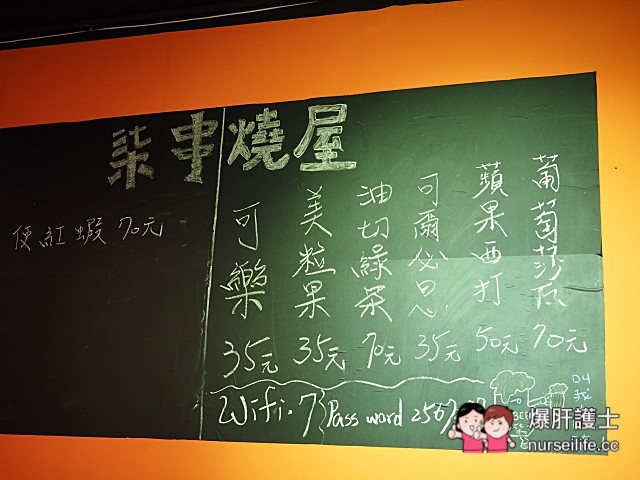 柒串燒屋
使紅蝦 70元
葡萄莎瓦 70元
蘋果西打 50元
可爾必思 35元
油切綠茶 70元
美粒果 35元
可樂 35元
Wifi.7
Pass word 250
爆肝護士
nurseilife.cc